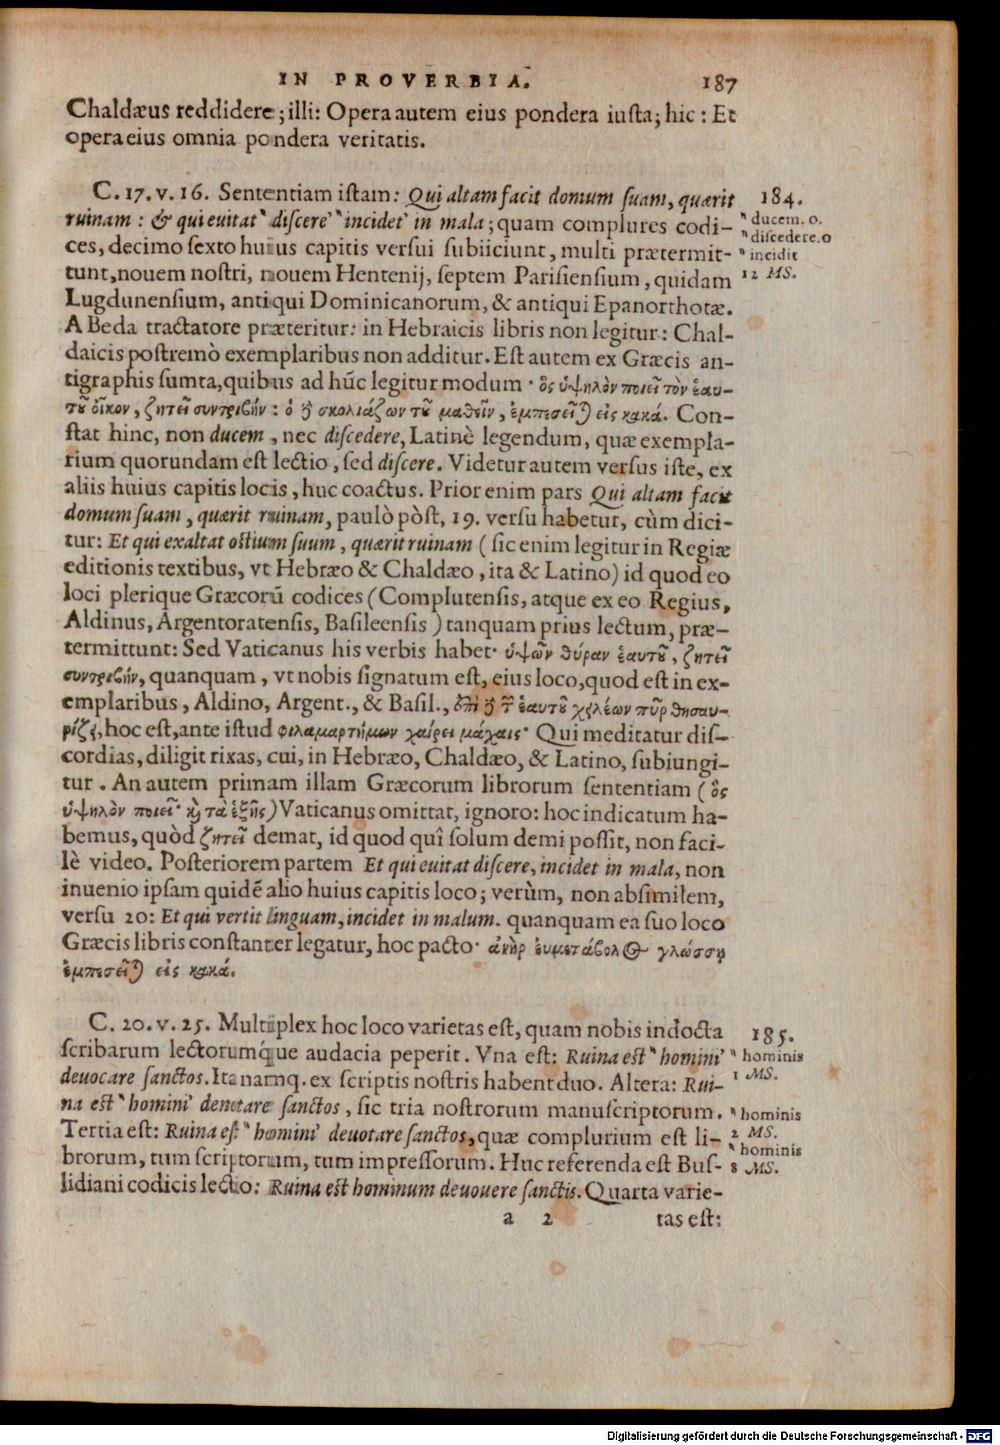 IN PROVERBIA. 187
Chaldæus reddidere; illi: Opera autem eius pondera iusta; hic: Et
opera eius omnia pondera veritatis.
C. 17. v. 16. Sententiam istam: Qui altam facit domum suam, quærit 184.
ruinam: & qui euitat " discere' " incidet' in mala; quam complures codi- " ducem. o.
ces, decimo sexto huius capitis versui subiiciunt, multi prætermit- " discedere. o " incidit
tunt, nouem nostri, nouem Hentenij, septem Parisiensium, quidam 12 MS.
Lugdunensium, antiqui Dominicanorum, & antiqui Epanorthotæ.
A Beda tractatore præteritur: in Hebraicis libris non legitur: Chal-
daicis postremò exemplaribus non additur. Est autem ex Græcis an-
tigraphis sumta, quibus ad hũc legitur modum · ὃς ὑψηλὸν ποιεῖ τὸν ἑαυ-
τοῦ οἶκον, ζητεῖ συντριβήν: ὁ δὲ σκολιάζων τοῦ μαθεῖν, ἐμπεσεῖται εἰς κακά. Con-
stat hinc, non ducem, nec discedere, Latinè legendum, quæ exempla-
rium quorundam est lectio, sed discere. Videtur autem versus iste, ex
aliis huius capitis locis, huc coactus. Prior enim pars Qui altam facit
domum suam, quærit ruinam, paulò pòst, 19. versu habetur, cùm dici-
tur: Et qui exaltat ostium suum, quærit ruinam (sic enim legitur in Regiæ
editionis textibus, vt Hebræo & Chaldæo, ita & Latino) id quod eo
loci plerique Græcorũ codices (Complutensis, atque ex eo Regius,
Aldinus, Argentoratensis, Basileensis) tanquam prius lectum, præ-
termittunt: Sed Vaticanus his verbis habet· ὑψῶν θύραν ἑαυτοῦ, ζητεῖ
συντριβήν, quanquam, vt nobis signatum est, eius loco, quod est in ex-
emplaribus, Aldino, Argent., & Basil., ἐπὶ δὲ τῶν ἑαυτοῦ χειλέων πῦρ θησαυ-
ρίζει, hoc est, ante istud φιλαμαρτήμων χαίρει μάχαις· Qui meditatur dis-
cordias, diligit rixas, cui, in Hebræo, Chaldæo, & Latino, subiungi-
tur. An autem primam illam Græcorum librorum sententiam (ὃς
ὑψηλὸν ποιεῖ· καὶ τὰ ἑξῆς) Vaticanus omittat, ignoro: hoc indicatum ha-
bemus, quòd ζητεῖ demat, id quod quî solum demi possit, non faci-
lè video. Posteriorem partem Et qui euitat discere, incidet in mala, non
inuenio ipsam quidẽ alio huius capitis loco; verùm, non absimilem,
versu 20: Et qui vertit linguam, incidet in malum. quanquam ea suo loco
Græcis libris constanter legatur, hoc pacto· ἀνὴρ εὐμετάβολος γλώσσῃ
ἐμπεσεῖται εἰς κακά.
C. 20. v. 25. Multiplex hoc loco varietas est, quam nobis indocta 185.
scribarum lectorumq́ue audacia peperit. Vna est: Ruina est " homini' " hominis
deuocare sanctos. Ita namq. ex scriptis nostris habent duo. Altera: Rui- 1 MS.
na est " homini' denotare sanctos, sic tria nostrorum manuscriptorum. " hominis
Tertia est: Ruina est " homini' deuotare sanctos, quæ complurium est li- 2 MS. " hominis
brorum, tum scriptorum, tum impressorum. Huc referenda est Bus- 8 MS.
lidiani codicis lectio: Ruina est hominum deuouere sanctis. Quarta varie-
a 2 tas est:
Digitalisierung gefördert durch die Deutsche Forschungsgemeinschaft - DFG